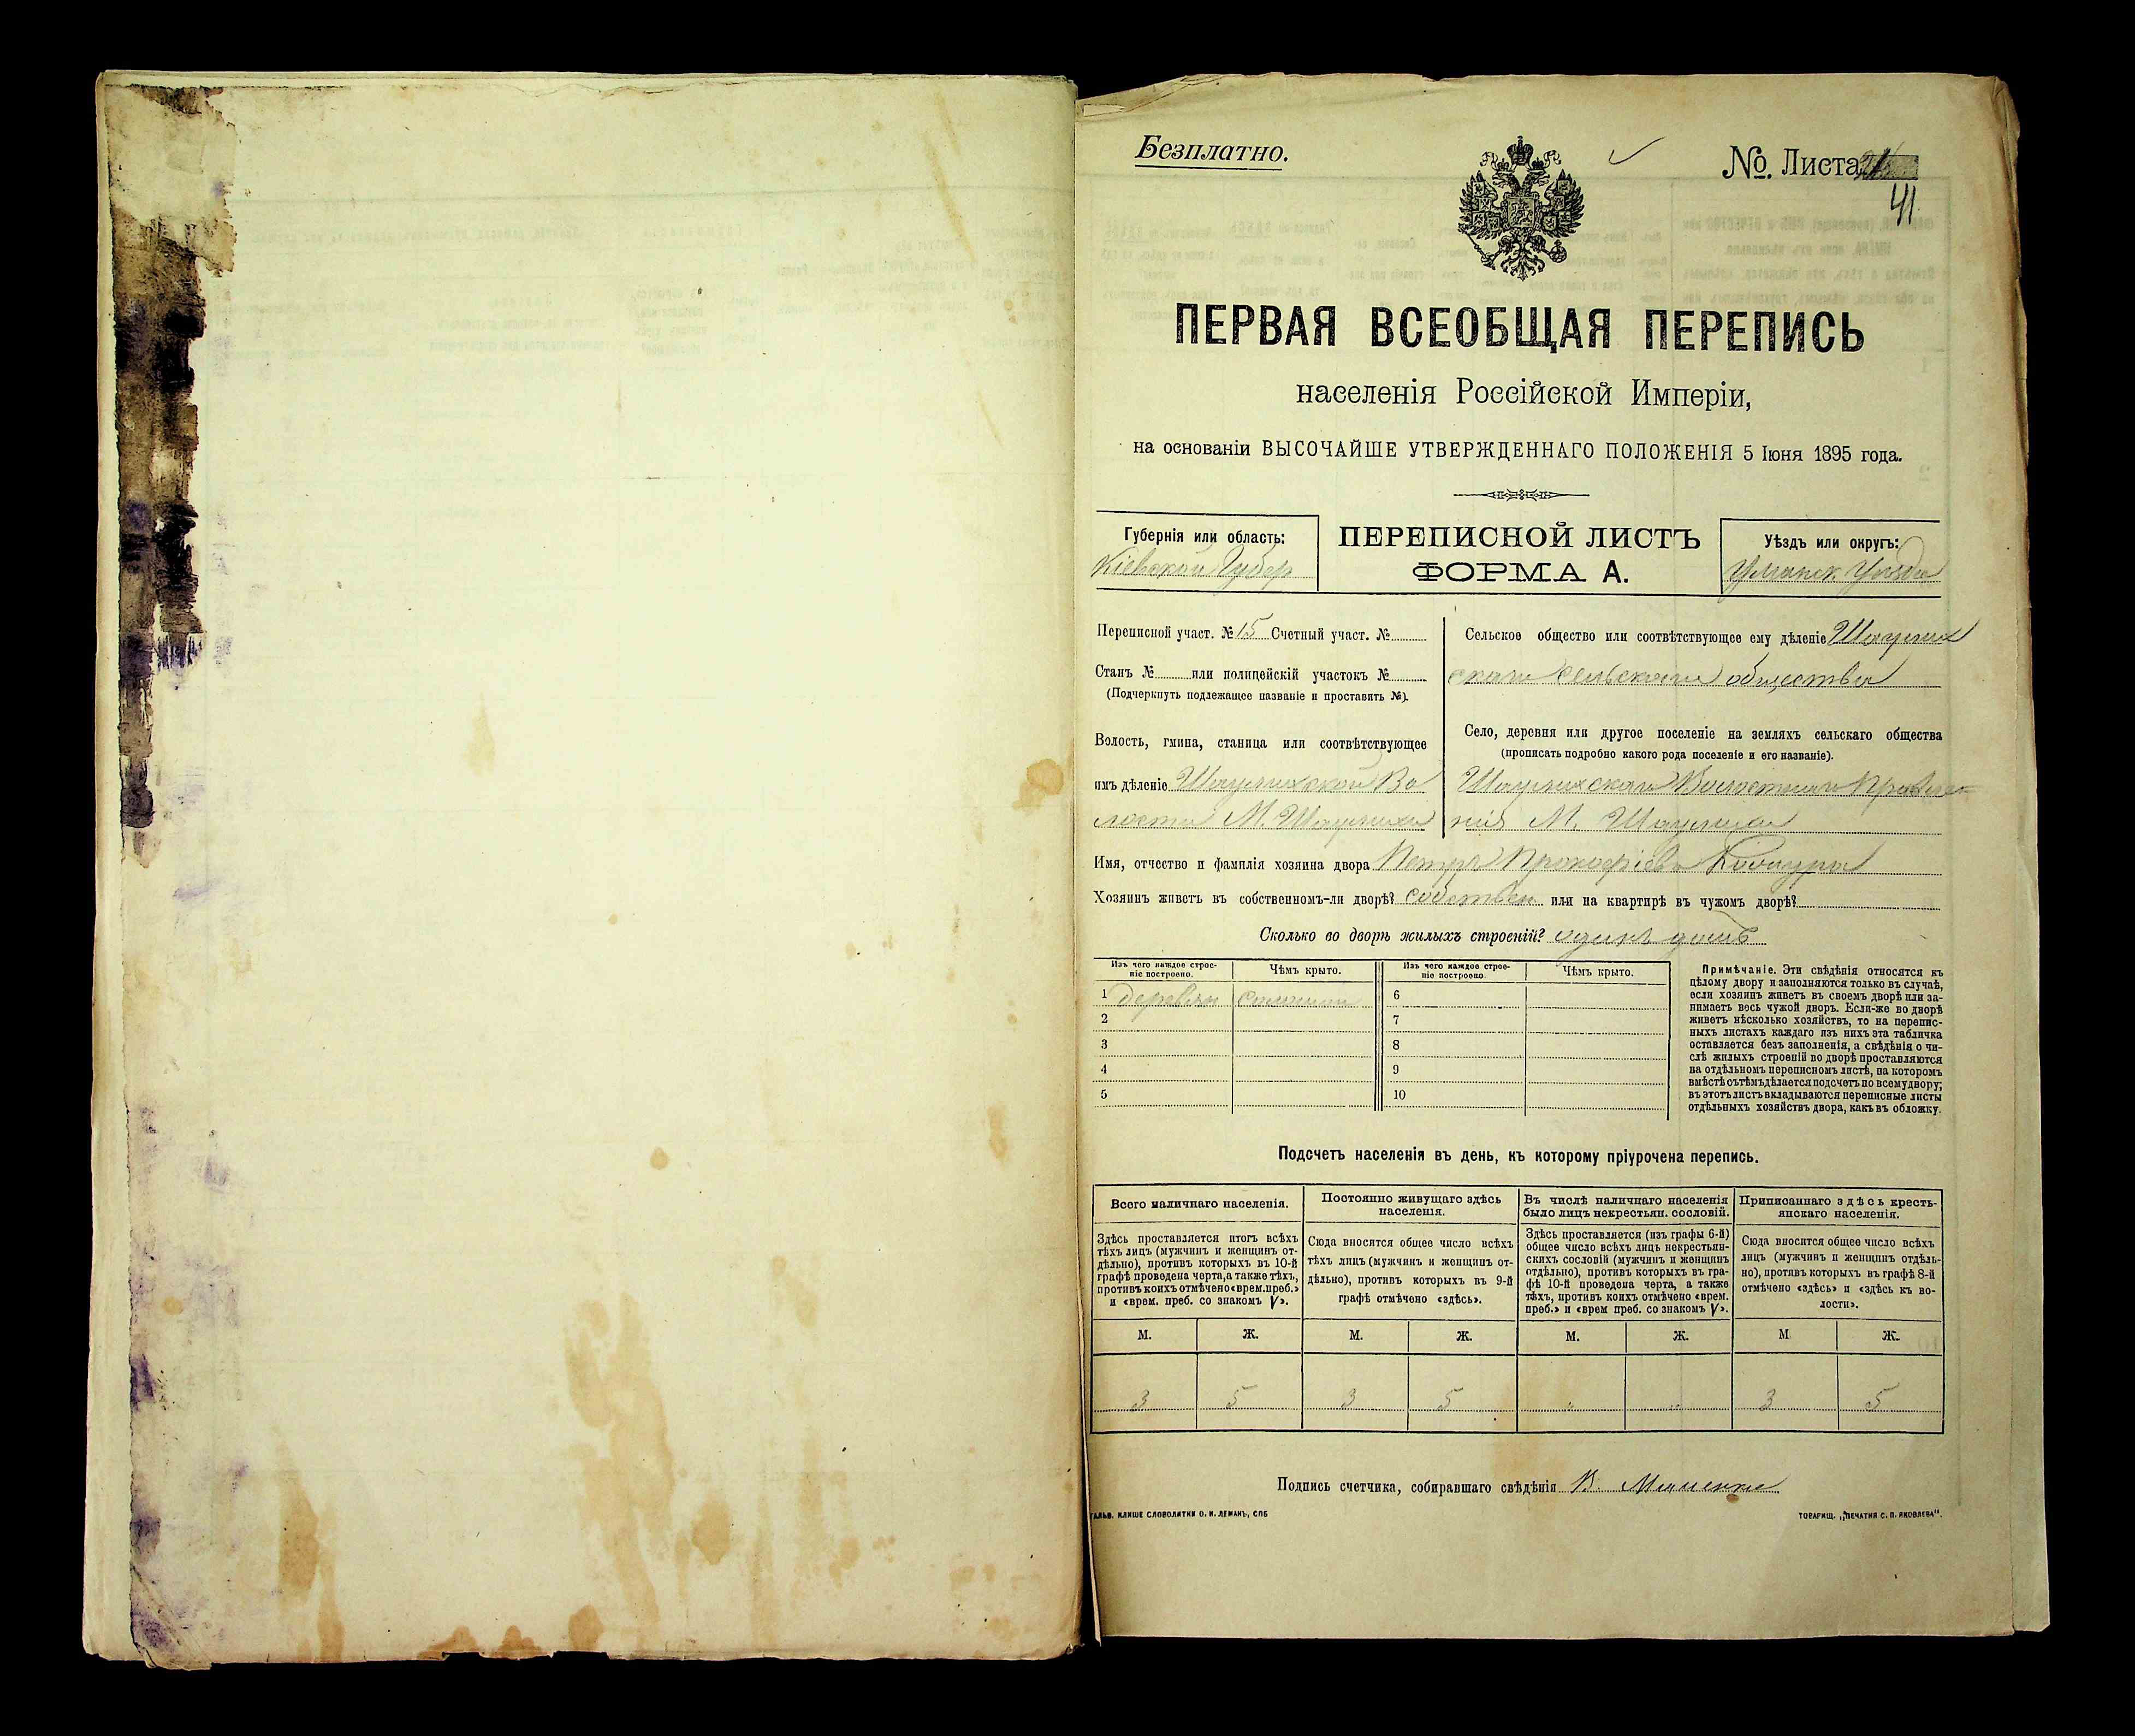 Безплатно.
№. Листа
41
ПЕРВАЯ ВСЕОБЩАЯ ПЕРЕПИСЬ
населенія Россійской Имперіи,
на основаніи ВЫСОЧАЙШЕ УТВЕРЖДЕННАГО ПОЛОЖЕНІЯ 5 Іюня 1895 года.
Губернія или область:
Кіевской Губер
ПЕРЕПИСНОЙ ЛИСТЪ
ФОРМА А.
Уѣздъ или округъ:
Уманск Уѣзда
Переписной участ. № 15 Счетный участ. №
Станъ № или полицейскій участокъ №
(Подчеркнуть подлежащее названіе и проставить №).
Волость, гмина, станица или соотвѣтствующее
имъ дѣленіе Шаулихской Во
лости М. Шаулихи
Сельское общество или соотвѣтствующее ему дѣленіе Шаулих
скаго сельскаго общества
Село, деревня или другое поселеніе на земляхъ сельскаго общества
(прописать подробно какого рода поселеніе и его названіе).
Шаулихскаго Волостнаго Правле
нія М. Шаулиха
Имя, отчество и фамилія хозяина двора Петръ Прокофіевъ
Хозяинъ живетъ въ собственномъ-ли дворѣ? собствен или на квартирѣ въ чужомъ дворѣ?
Сколько во дворѣ жилыхъ строеній? одинъ домъ
Изъ чего каждое строе-
ніе построено.
Чѣмъ крыто.
Изъ чего каждое строе-
ніе построено.
Чѣмъ крыто.
1 деревян соломою 6
2 7
3 8
4 9
5 10
Примѣчаніе. Эти свѣдѣнія относятся къ
цѣлому двору и заполняются только въ случаѣ,
если хозяинъ живетъ въ своемъ дворѣ или за-
нимаетъ весь чужой дворъ. Если-же во дворѣ
живетъ нѣсколько хозяйствъ, то на перепис-
ныхъ листахъ каждаго изъ нихъ эта табличка
оставляется безъ заполненія, а свѣдѣнія о чи-
слѣ жилыхъ строеній во дворѣ проставляются
на отдѣльномъ переписномъ листѣ, на которомъ
вмѣстѣ съ тѣмъ дѣлается подсчетъ по всему двору;
въ этотъ листъ вкладываются переписные листы
отдѣльныхъ хозяйствъ двора, какъ въ обложку.
Подсчетъ населенія въ день, къ которому пріурочена перепись.
Всего наличнаго населенія.
Здѣсь проставляется итогъ всѣхъ
тѣхъ лицъ (мужчинъ и женщинъ от-
дѣльно), противъ которыхъ въ 10-й
графѣ проведена черта, а также тѣхъ,
противъ коихъ отмѣчено «врем. преб.»
и «врем. преб. со знакомъ V».
Постоянно живущаго здѣсь
населенія.
Сюда вносится общее число всѣхъ
тѣхъ лицъ (мужчинъ и женщинъ от-
дѣльно), противъ которыхъ въ 9-й
графѣ отмѣчено «здѣсь».
Въ числѣ наличнаго населенія
было лицъ некрестьян. сословій.
Здѣсь проставляется (изъ графы 6-й)
общее число всѣхъ лицъ некрестьян-
скихъ сословій (мужчинъ и женщинъ
отдѣльно), противъ которыхъ въ гра-
фѣ 10-й проведена черта, а также
тѣхъ, противъ коихъ отмѣчено «врем.
преб.» и «врем преб. со знакомъ V».
Приписаннаго здѣсь кресть-
янскаго населенія.
Сюда вносится общее число всѣхъ
лицъ (мужчинъ и женщинъ отдѣль-
но), противъ которыхъ въ графѣ 8-й
отмѣчено «здѣсь» и «здѣсь къ во-
лости».
М. Ж. М. Ж. М. Ж. М Ж.
3 5 3 5 " " 3 5
Подпись счетчика, собиравшаго свѣдѣнія
ГАЛЬВ. КЛИШЕ СЛОВОЛИТНИ О. И. ЛЕМАНЪ, СПБ
ТОВАРИЩ. „ПЕЧАТНЯ С. П. ЯКОВЛЕВА".